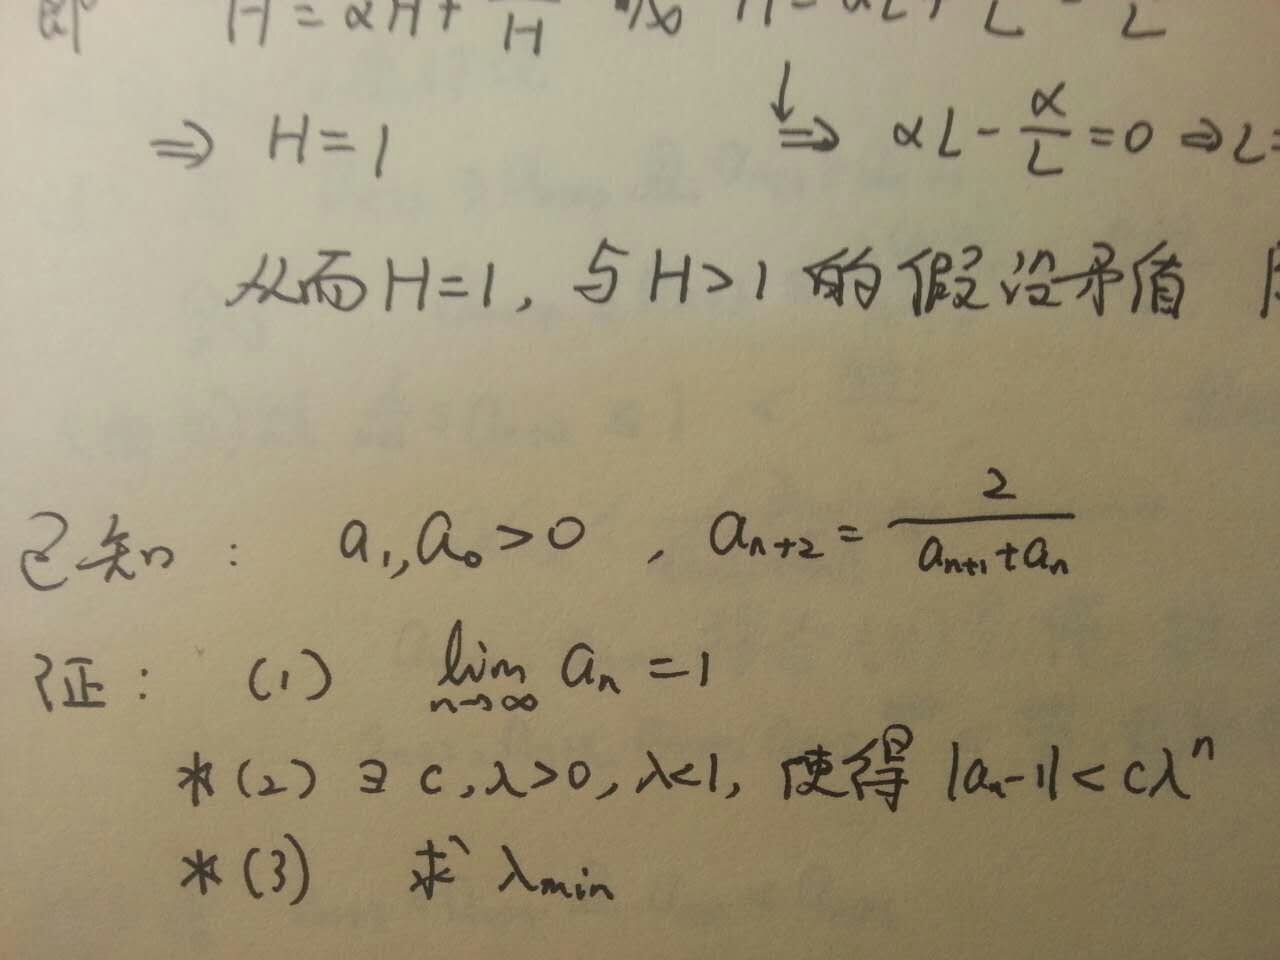 即 H = αH + /H 从 H = αL + /L - /L
⇒ H = 1 ↓ ⇒ αL - α/L = 0 ⇒ L =
从而 H = 1, 与 H > 1 的假设矛值
已知: a₁, a₀ > 0, aₙ₊₂ = 2/(aₙ₊₁ + aₙ)
证: (1) lim_{n→∞} aₙ = 1
*(2) ∃ c, λ > 0, λ < 1, 使得 |aₙ - 1| < cλⁿ
*(3) 求 λmin